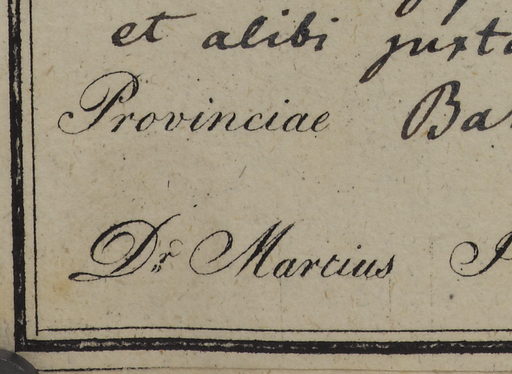 et alibi juxta
Provinciae
Dr. Martius